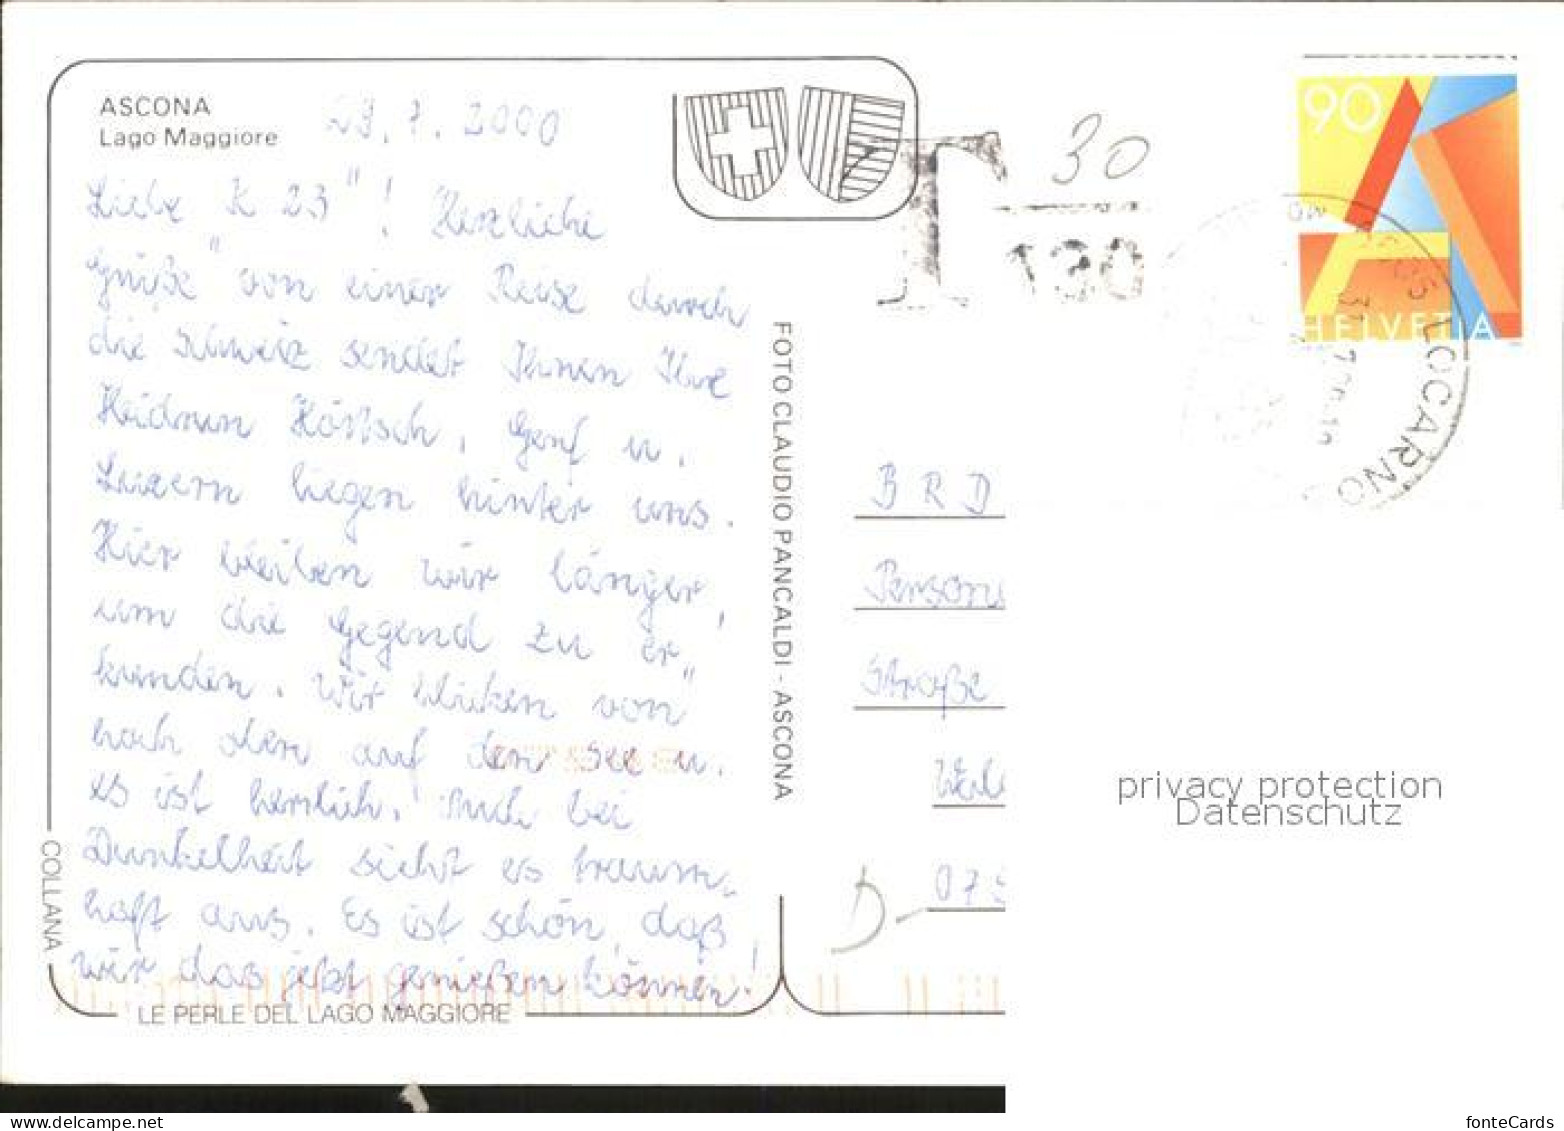 ASCONA
Lago Maggiore
29.7.2000
Liebe "K 23"! Herzliche
Grüße von einer Reise durch
die Schweiz sendet Ihnen Ihre
Heidrun. Genf u.
Luzern liegen hinter uns.
Hier weilen wir länger,
um die Gegend zu er"
kunden. Wir blicken von
hoch oben auf den See u.
es ist herrlich. Auch bei
Dunkelheit sieht es traum"
haft aus. Es ist schön, daß
wir das jetzt genießen können!
LE PERLE DEL LAGO MAGGIORE
COLLANA
FOTO CLAUDIO PANCALDI - ASCONA
T 30
130
90
HELVETIA
LOCARNO
BRD
Straße
D- 
privacy protection
Datenschutz
fonteCards